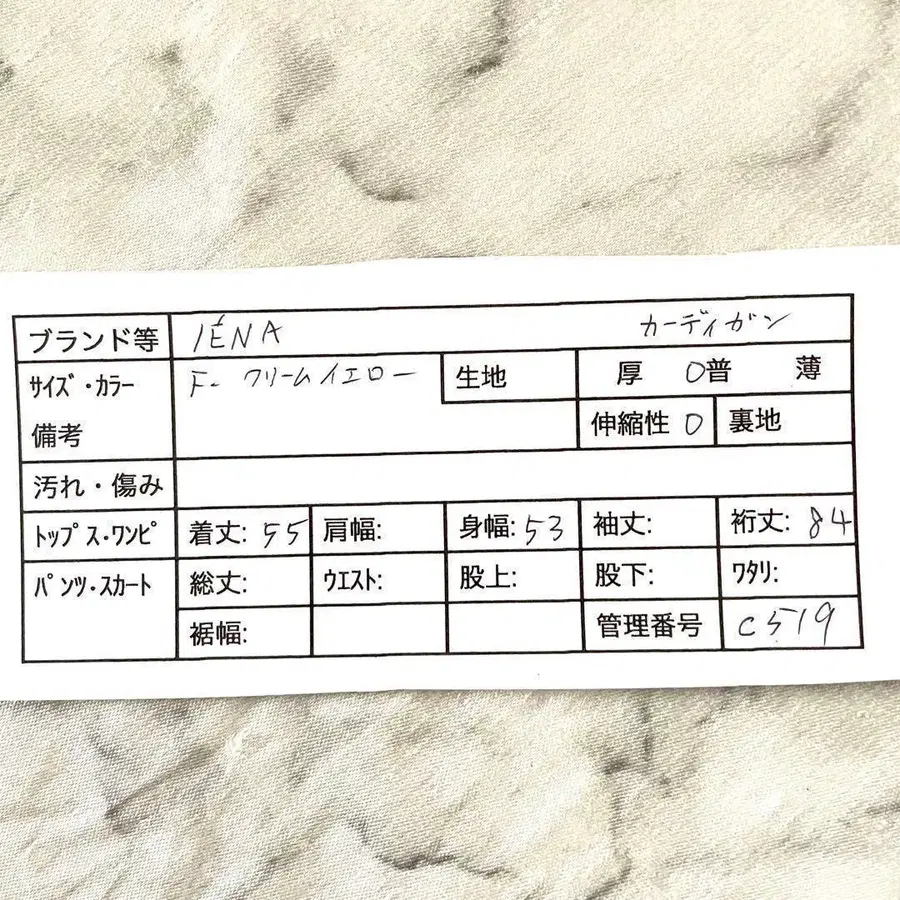 ブランド等 IÉNA カーディガン
サイズ・カラー F- クリームイエロー 生地 厚 O普 薄
備考 伸縮性 O 裏地
汚れ・傷み
トップス・ワンピ 着丈: 55 肩幅: 身幅: 53 袖丈: 裄丈: 84
パンツ・スカート 総丈: ウエスト: 股上: 股下: ワタリ:
裾幅: 管理番号 C519